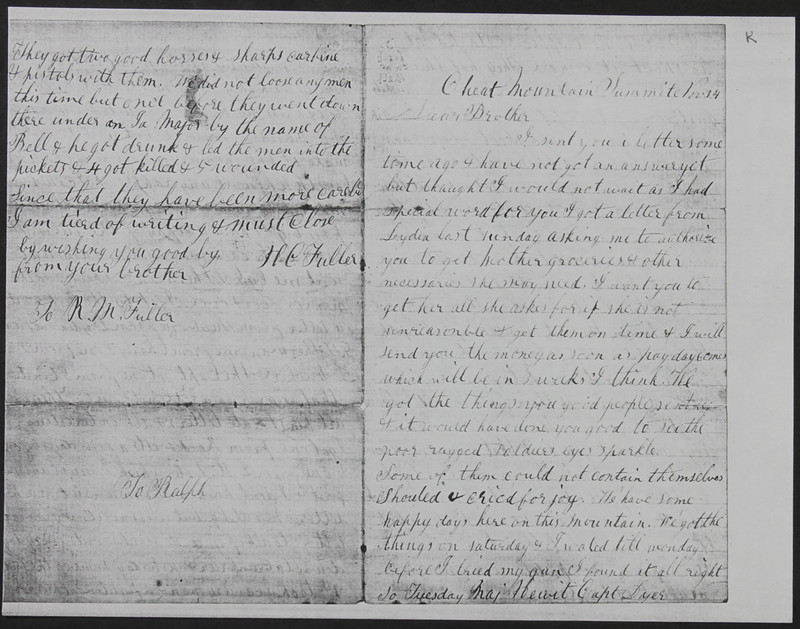 Cheat Mountain Summite Nov 14
Dear Brother
I sent you a letter some
time ago & have not got an answer yit
but thaught I would not wait as I had
special word for you I got a letter from
Lydea last sunday asking me to authorize
you to get Mother groceries & other
necessaries she may need. I want you to
get her all she askes for if she is not
unreasonble & get them on time & I will
send you the money as soon as pay day comes
which will be in weeks I think We
got the things you good people sent us
& it would have done you good to see the
poor ragged soldiers eyes sparkle.
Some of them could not contain themselves
Shouted & cried for joy. We have some
happy days here on this mountain. We got the
things on saturday & I waled till monday
before I tried my gun I found it all right
So Tuesday Maj Hewit Capt Dyer
They got two good horses & sharps carbine
& pistols with them. We did not loose any men
this time but once before they went down
there under an Ia Major by the name of
Bell & he got drunk & led the men into the
pickets & 4 got killed & 5 wounded
Since that they have been more careful
I am tierd of writing & must close
by wishing you good by H C Fuller
from your brother
To R. M. Fuller
To Ralph
R